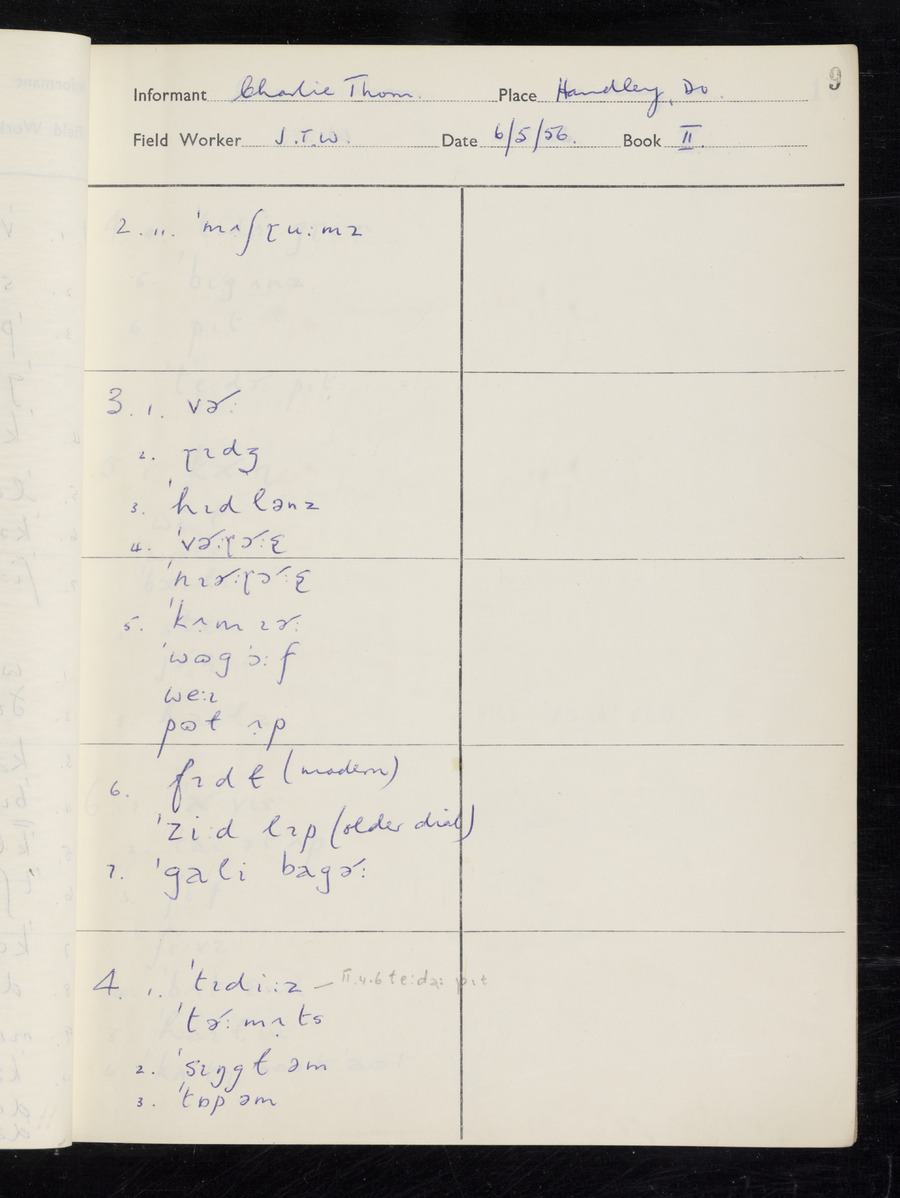 9
Informant Charlie Thom. Place Handley, Do.
Field Worker J.T.W. Date 6/5/56. Book II.
2. 11. ˈmʌʃɽu:mz
3. 1. vɚ:
2. ɽɪdʒ
3. ˈhɪdlənz
4.
5.
ˈwɒgɔ:f
we:ɪ
pɒt ʌp
6. fɪdɫ (modern)
ˈzi:d lɪp (older dial)
7. ˈgali bagɚ:
4. 1. ˈtɪdi:z – II.4.6 te:də: pɪt
ˈtɚ:mʌts
2. ˈsɪŋgɫ əm
3. ˈtɒp əm